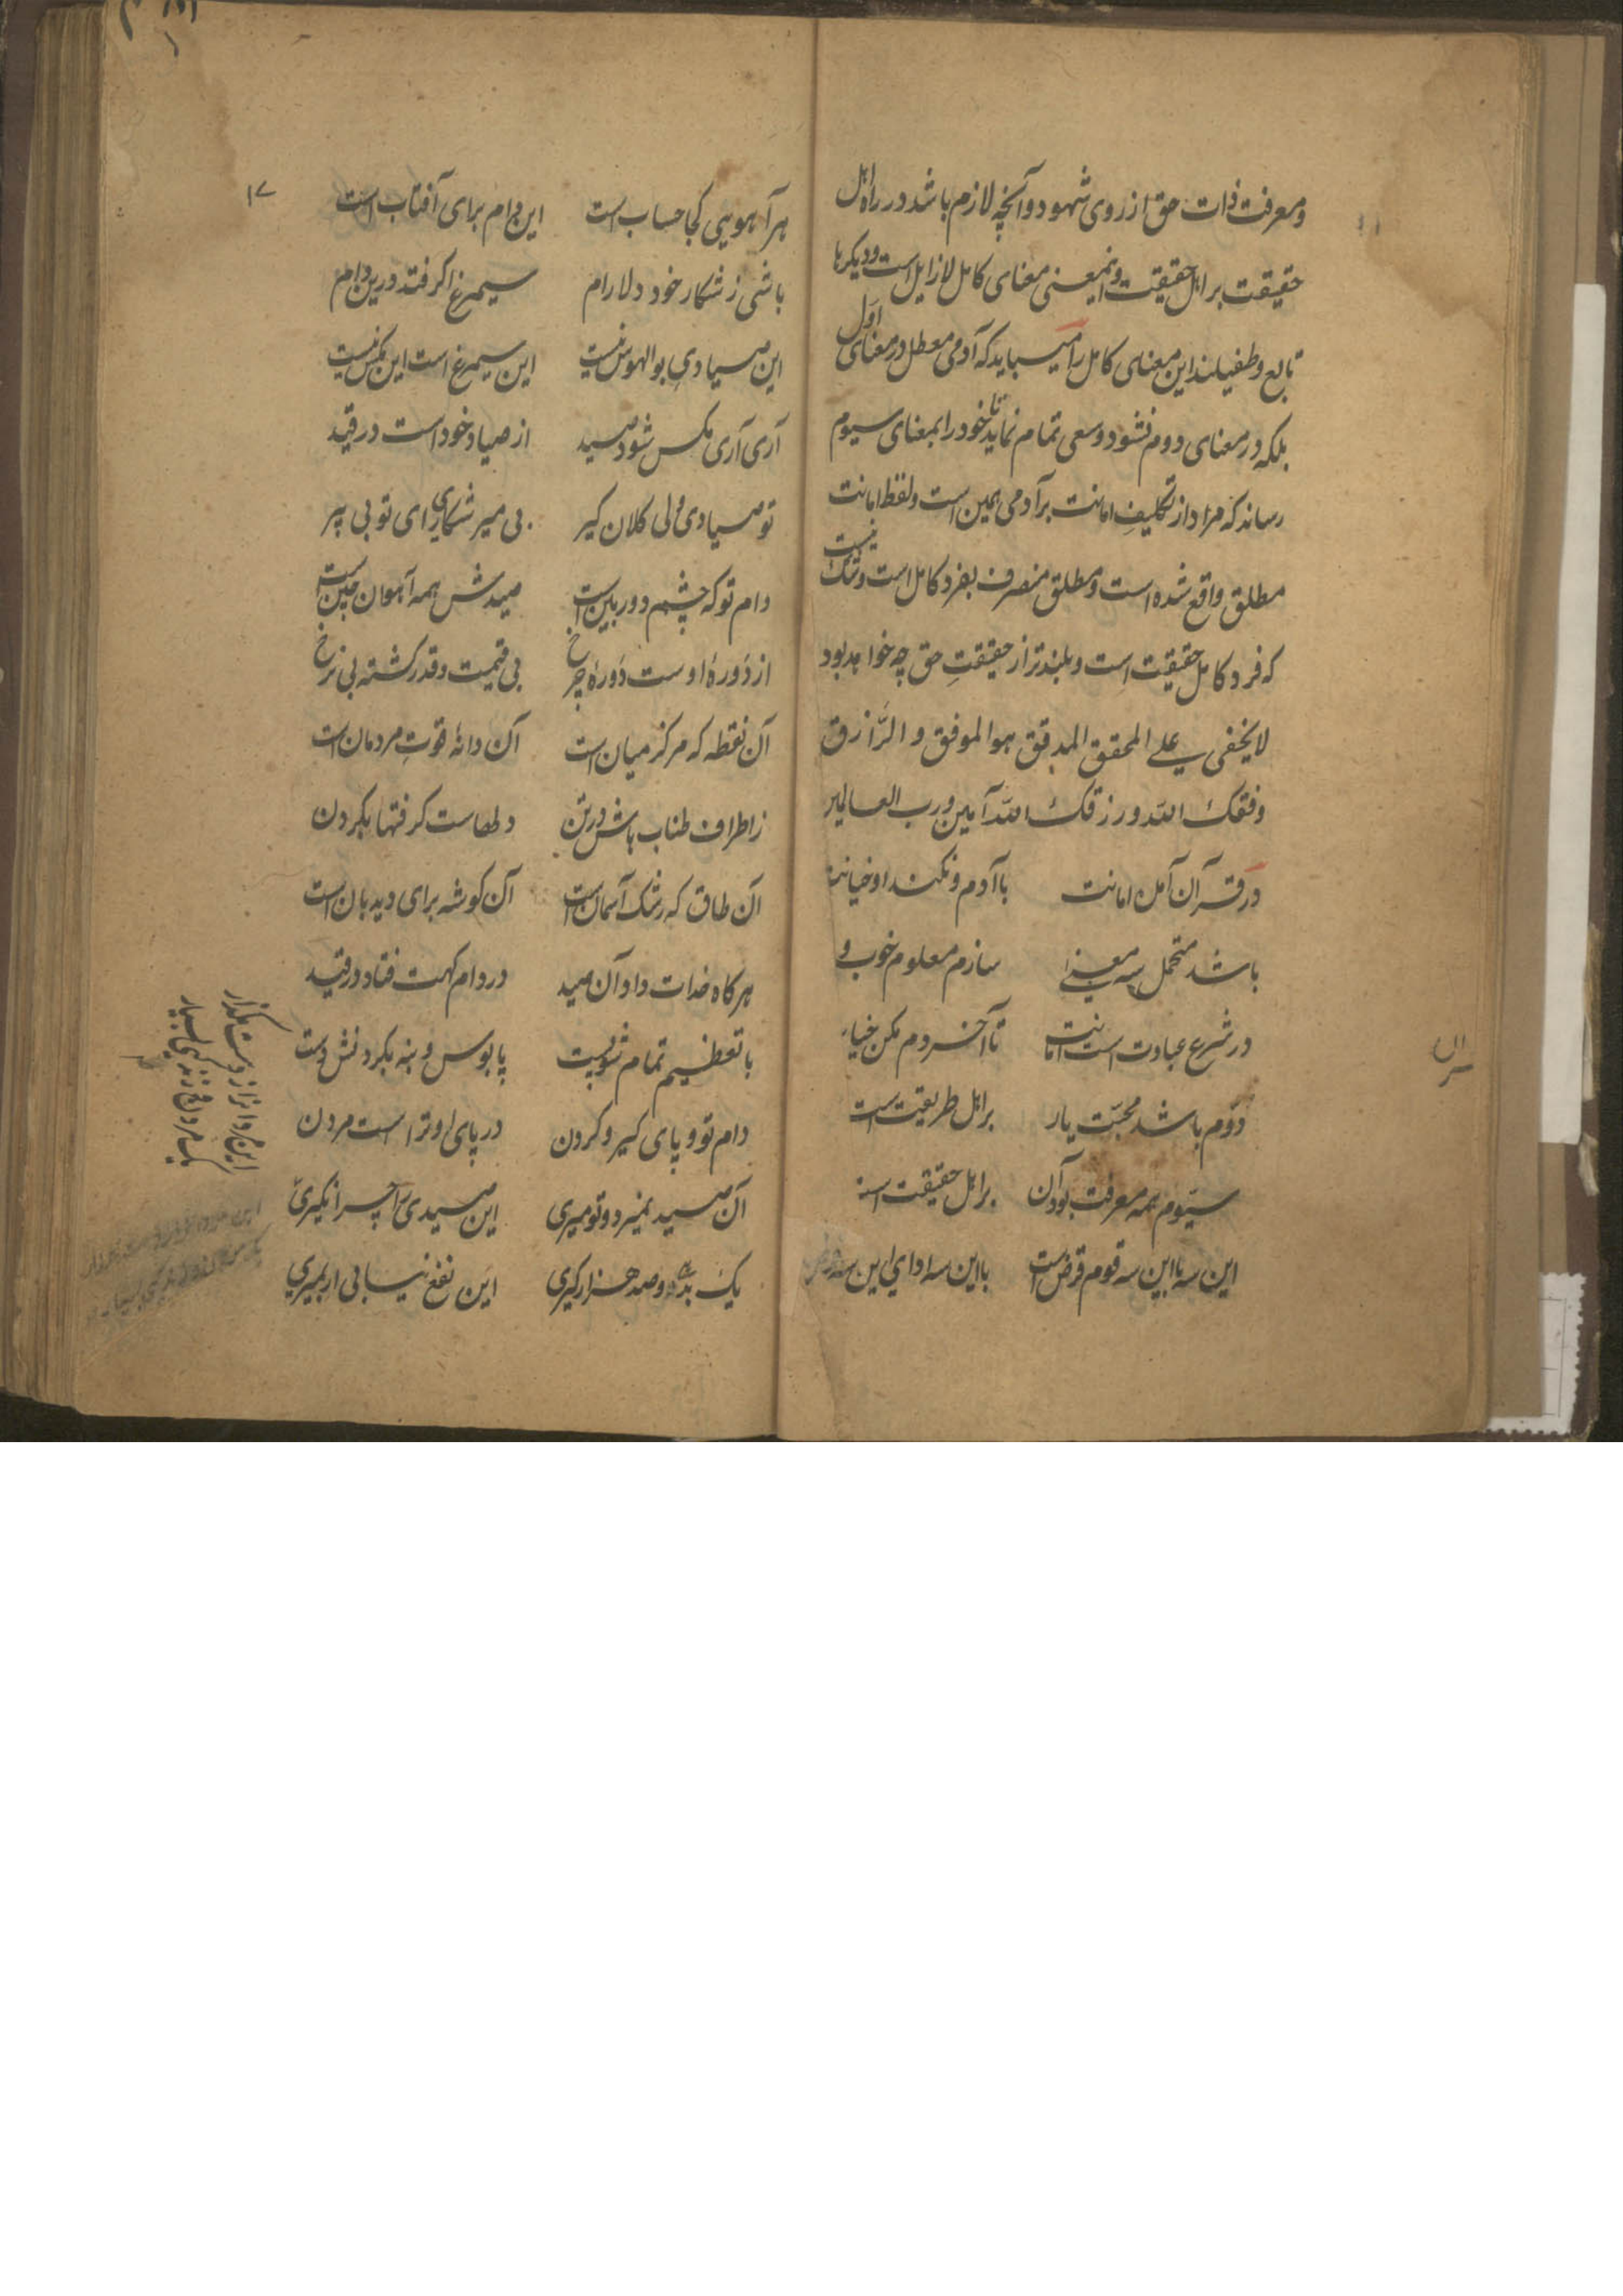 ومعرفت ذات حق از روی شهود و آنچه لازم باشد در راه اهل
حقیقت بر اهل حقیقت و اینمعنی معنای کامل لازایل است و دیکرها
تابع و طفیلند این معنای کامل را میباید که آدمی معطل در معنای اول
بلکه در معنای دوم نشود و سعی تمام نماید تا خود را بمعنای سیوم
رساند که مراد از تکلیف امانت بر آدمی همین است و لفظ امانت
مطلق واقع شده است و مطلق منصرف بفرد کامل است و شک نیست
که فرد کامل حقیقت است و بلندتر از حقیقتِ حق چه خواهد بود
لا یخفی علی المحقق المدقق هو الموفق و الرَّازق
وفقک الله و رزقک الله آمین ورب العالمین
در قرآن آمل امانت با آدم و نکند او خیانت
باشد متحمل سه معنی سازم معلوم خوب و
در شرع عبادت است امانت تا آخر دم مکن خیا
دوّم باشد محبّت یار بر اهل طریقیت است
سیّوم همه معرفت بود آن بر اهل حقیقت است
این سه با این سه قوم قرض است با این سه ادای این سه
سراں
۱۷
هر آهویی کجا حساب است این دام برای آفتاب است
باشی ز شکار خود دلارام سیمرغ اکر فتد درین دام
این صیادیِ بوالهوس نیست این سیمرغ است این مکس نیست
آری آری مکس شود صید از صیاد خود است در قید
تو صیادی ولی کلان کیر بی میر شکاری ای تو بی پیر
دام تو که چشم دوربین است صیدش همه آهوان چین است
از دَورهٔ اوست دَورهٔ چرخ بی قیمت و قدر کشته بی نرخ
آن نقطه که مرکز میان است آن دانهٔ قوتِ مردمان است
ز اطراف طناب باش درتن دلهاست کرفتها بکردن
آن طاق که رشک آسمان است آن کوشه برای دیدبان است
هرکاه خدات داد آن صید در دام کهت فتاد در قید
با تعظیم تمام شو پست پا بوس و بنه بکردنش دست
دام تو و پای کیر و کردن در پای او ترا است مردن
آن صید نمیرد و تو میری این صیدی را چرا نکیری
یک بده و صد هزار کیری این نفع نیابی ار بمیری